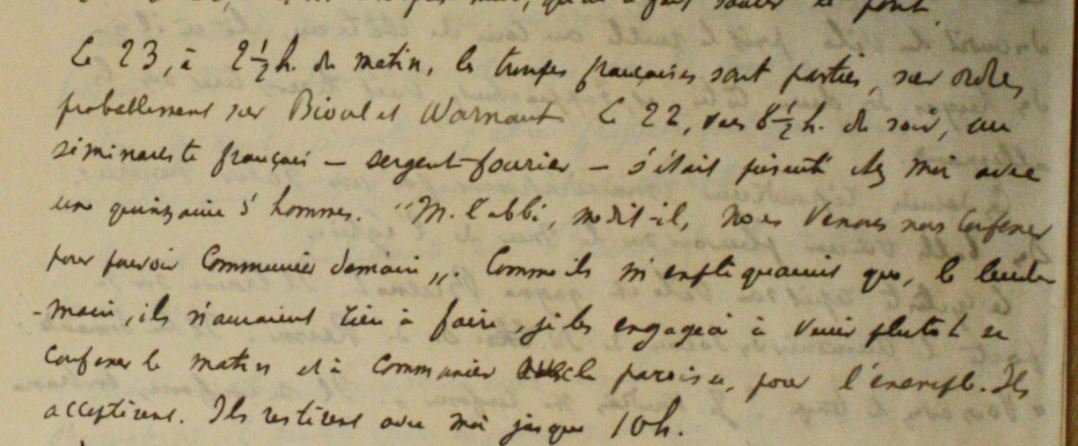 qu'on a fait sauter le pont
Le 23, à 2 1/2 h. du matin, les troupes françaises sont parties, sur ordre,
probablement sur Bioul et Warnant. Le 22, vers 8 1/2 h. du soir, un
séminariste français – sergent-fourier – s'était présenté chez moi avec
une quinzaine d'hommes. "M. l'abbé, me dit-il, nous venons nous confesser
pour pouvoir communier demain". Comme ils m'expliquaient que, le lende
-main, ils n'auraient rien à faire, je les engageai à venir plutôt se
confesser le matin et à communier avec la paroisse, pour l'exemple. Ils
acceptèrent. Ils restèrent avec moi jusque 10h.